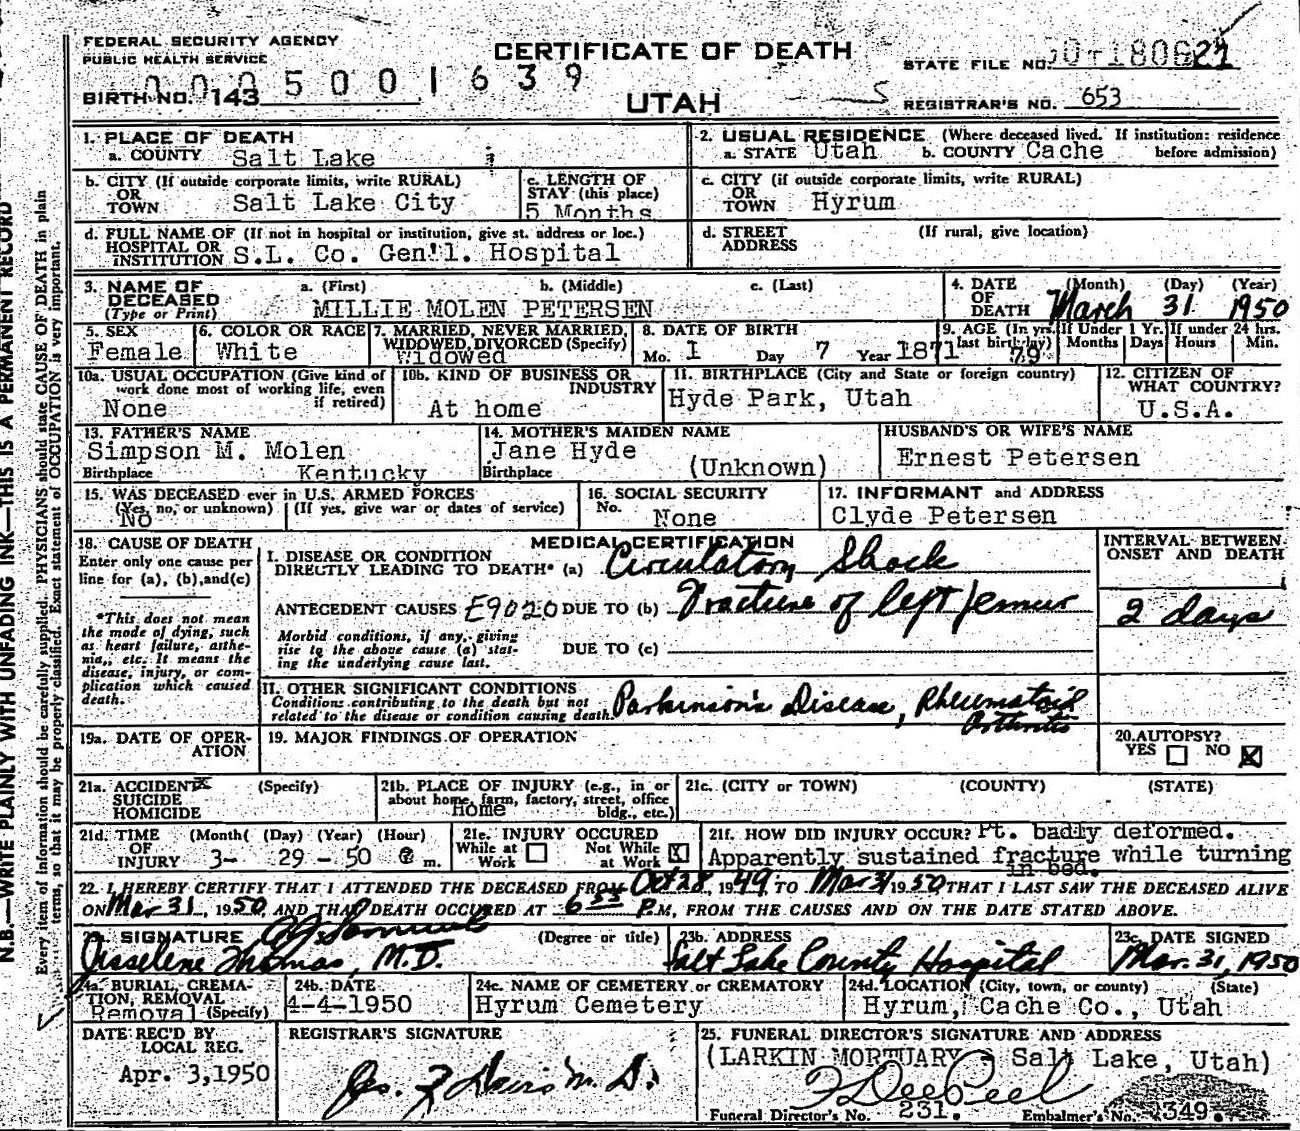 FEDERAL SECURITY AGENCY
PUBLIC HEALTH SERVICE
CERTIFICATE OF DEATH
STATE FILE NO.
0005001639
BIRTH NO. 143
UTAH
REGISTRAR'S NO. 653
1. PLACE OF DEATH
a. COUNTY Salt Lake
2. USUAL RESIDENCE (Where deceased lived. If institution: residence before admission)
a. STATE Utah b. COUNTY Cache
b. CITY (If outside corporate limits, write RURAL)
OR TOWN Salt Lake City
c. LENGTH OF STAY (this place)
5 Months
c. CITY (if outside corporate limits, write RURAL)
OR TOWN Hyrum
d. FULL NAME OF (If not in hospital or institution, give st. address or loc.)
HOSPITAL OR
INSTITUTION S.L. Co. Gen'l. Hospital
d. STREET ADDRESS (If rural, give location)
3. NAME OF DECEASED
(Type or Print)
a. (First) b. (Middle) c. (Last)
MILLIE MOLEN PETERSEN
4. DATE OF DEATH (Month) (Day) (Year)
March 31 1950
5. SEX
Female
6. COLOR OR RACE
White
7. MARRIED, NEVER MARRIED, WIDOWED, DIVORCED (Specify)
Widowed
8. DATE OF BIRTH
Mo. 1 Day 7 Year 1871
9. AGE (In yrs. last birthday) 79
If Under 1 Yr. Months Days
If under 24 hrs. Hours Min.
10a. USUAL OCCUPATION (Give kind of work done most of working life, even if retired)
None
10b. KIND OF BUSINESS OR INDUSTRY
At home
11. BIRTHPLACE (City and State or foreign country)
Hyde Park, Utah
12. CITIZEN OF WHAT COUNTRY?
U.S.A.
13. FATHER'S NAME
Simpson M. Molen
Birthplace Kentucky
14. MOTHER'S MAIDEN NAME
Jane Hyde
Birthplace (Unknown)
HUSBAND'S OR WIFE'S NAME
Ernest Petersen
15. WAS DECEASED ever in U.S. ARMED FORCES
(Yes, no, or unknown) (If yes, give war or dates of service)
No
16. SOCIAL SECURITY
No. None
17. INFORMANT and ADDRESS
Clyde Petersen
18. CAUSE OF DEATH
Enter only one cause per line for (a), (b), and (c)
*This does not mean the mode of dying, such as heart failure, asthenia, etc. It means the disease, injury, or complication which caused death.
MEDICAL CERTIFICATION
I. DISEASE OR CONDITION
DIRECTLY LEADING TO DEATH* (a) Circulatory Shock
ANTECEDENT CAUSES E9020 DUE TO (b) Fracture of left femur
Morbid conditions, if any, giving rise to the above cause (a) stating the underlying cause last.
DUE TO (c)
INTERVAL BETWEEN ONSET AND DEATH
2 days
II. OTHER SIGNIFICANT CONDITIONS
Conditions contributing to the death but not related to the disease or condition causing death.
Parkinson's Disease, Rheumatoid Arthritis
19a. DATE OF OPERATION
19. MAJOR FINDINGS OF OPERATION
20. AUTOPSY?
YES NO X
21a. ACCIDENT X (Specify)
SUICIDE
HOMICIDE
21b. PLACE OF INJURY (e.g., in or about home, farm, factory, street, office bldg., etc.)
Home
21c. (CITY or TOWN) (COUNTY) (STATE)
21d. TIME OF INJURY (Month) (Day) (Year) (Hour)
3- 29 - 50 m.
21e. INJURY OCCURED
While at Work Not While at Work X
21f. HOW DID INJURY OCCUR? Pt. badly deformed.
Apparently sustained fracture while turning in bed.
22. I HEREBY CERTIFY THAT I ATTENDED THE DECEASED FROM Oct 28, 1949 TO Mar 31 1950 THAT I LAST SAW THE DECEASED ALIVE
ON Mar 31, 1950, AND THAT DEATH OCCURED AT 6 55 P.M, FROM THE CAUSES AND ON THE DATE STATED ABOVE.
SIGNATURE (Degree or title)
Thomas, M.D.
23b. ADDRESS
Salt Lake County Hospital
23c. DATE SIGNED
Mar. 31, 1950
24a. BURIAL, CREMATION, REMOVAL (Specify)
Removal
24b. DATE
4-4-1950
24c. NAME OF CEMETERY or CREMATORY
Hyrum Cemetery
24d. LOCATION (City, town, or county) (State)
Hyrum, Cache Co., Utah
DATE REC'D BY LOCAL REG.
Apr. 3,1950
REGISTRAR'S SIGNATURE
M. D.
25. FUNERAL DIRECTOR'S SIGNATURE AND ADDRESS
(LARKIN MORTUARY - Salt Lake, Utah)
Funeral Director's No. 231. Embalmer's No. 349.
N.B.—WRITE PLAINLY WITH UNFADING INK—THIS IS A PERMANENT RECORD
Every item of information should be carefully supplied. PHYSICIANS should state CAUSE OF DEATH in plain
terms, so that it may be properly classified. Exact statement of OCCUPATION is very important.